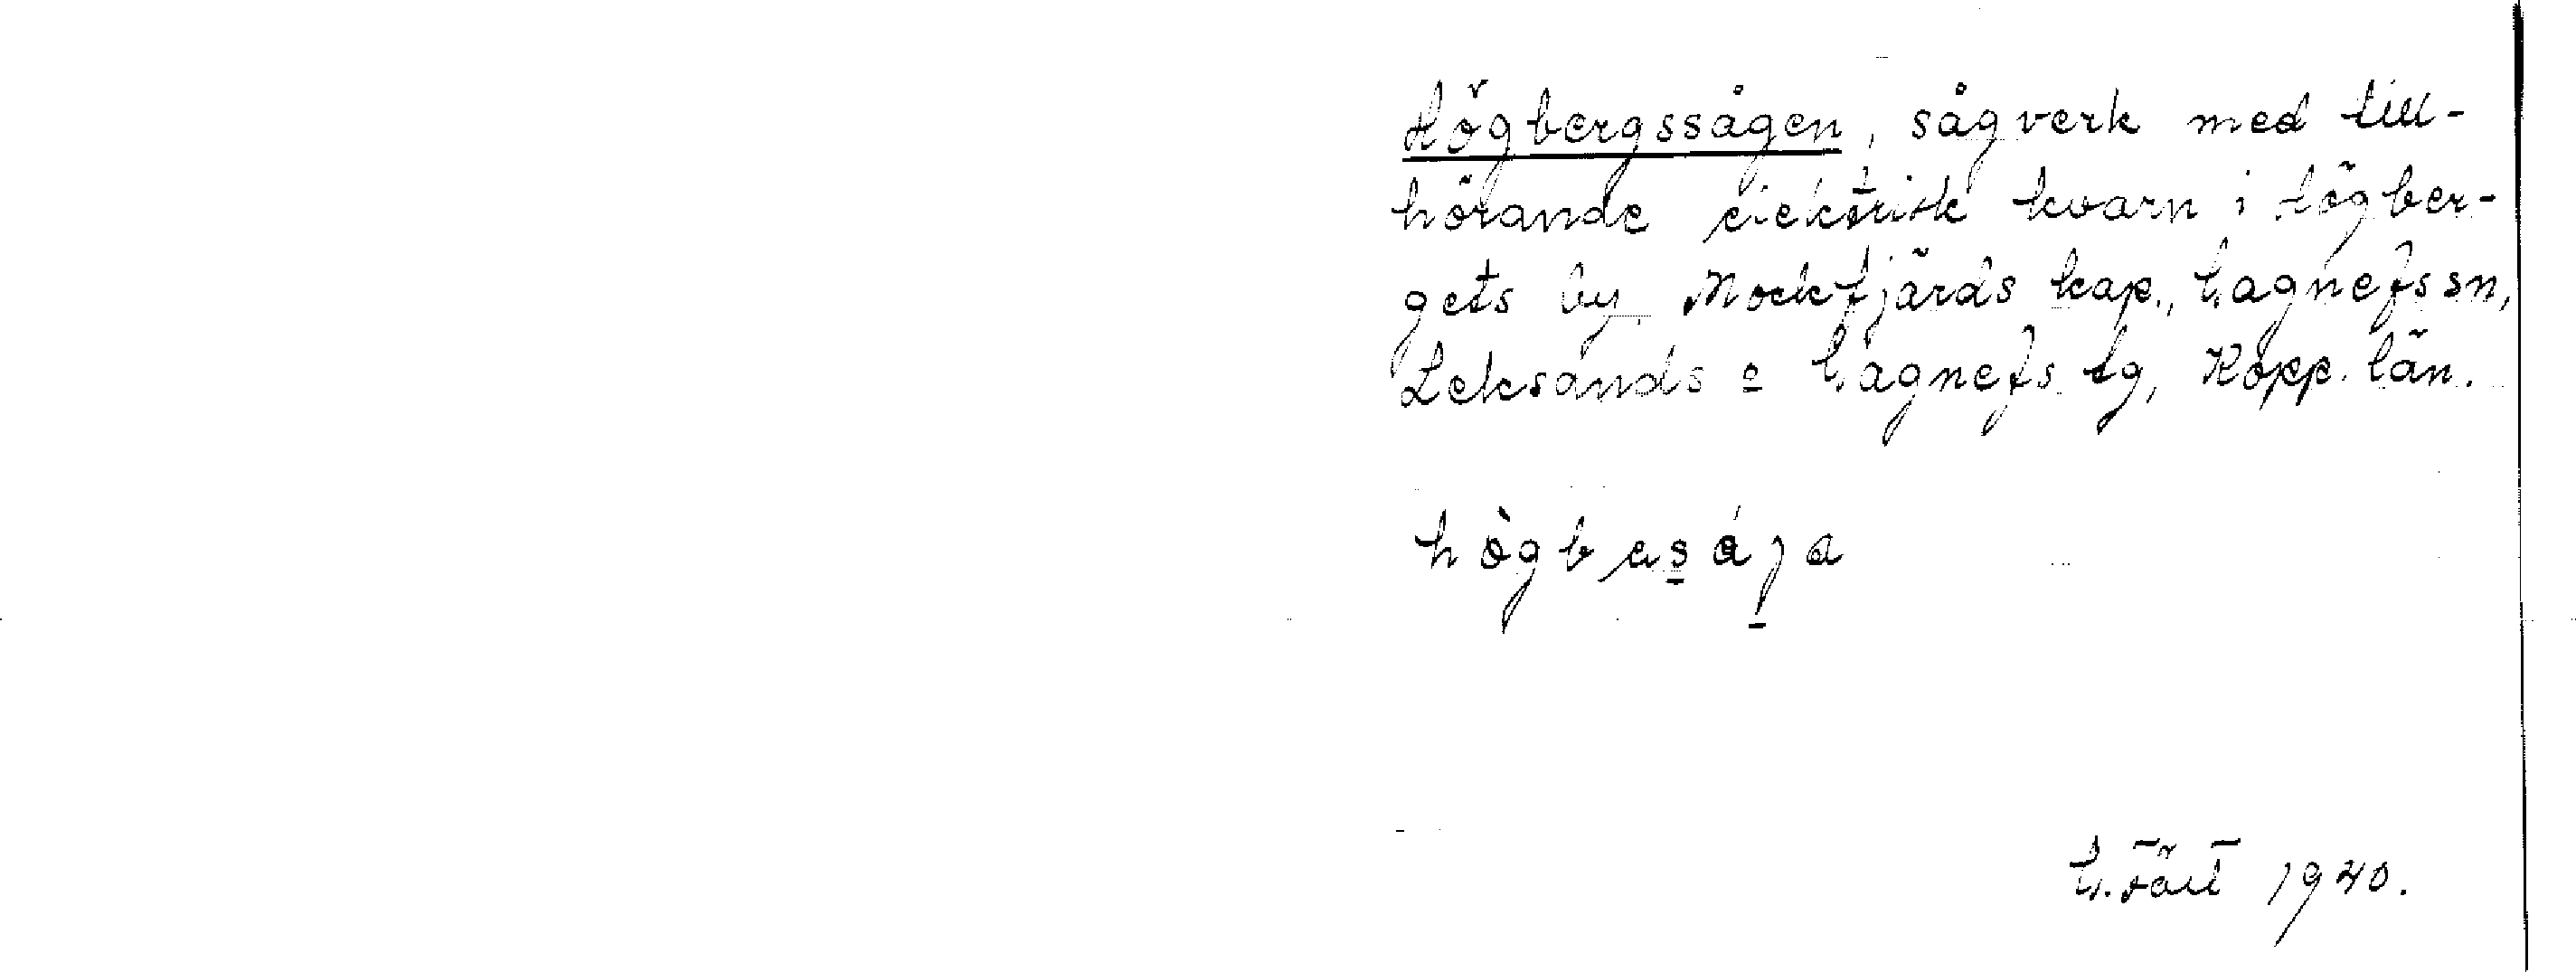 Högbergssågen, sågverk med till-
hörande elektrisk kvarn i Högber-
gets by, Mockfjärds kap., Gagnefs sn,
Leksands o Gagnefs tg, Kopp. län.
högbɐsája
G. 1940.